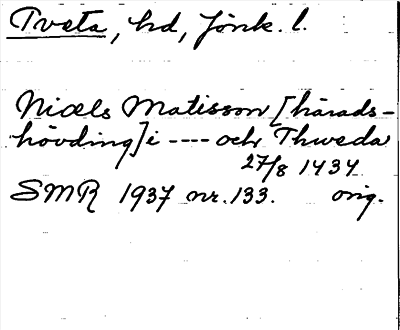 Tveta, hd, Jönk. l.
Nicels Matisson [härads-
hövding] i ---- och Thweda
27/8 1434
SMR 1937 nr. 133. orig.